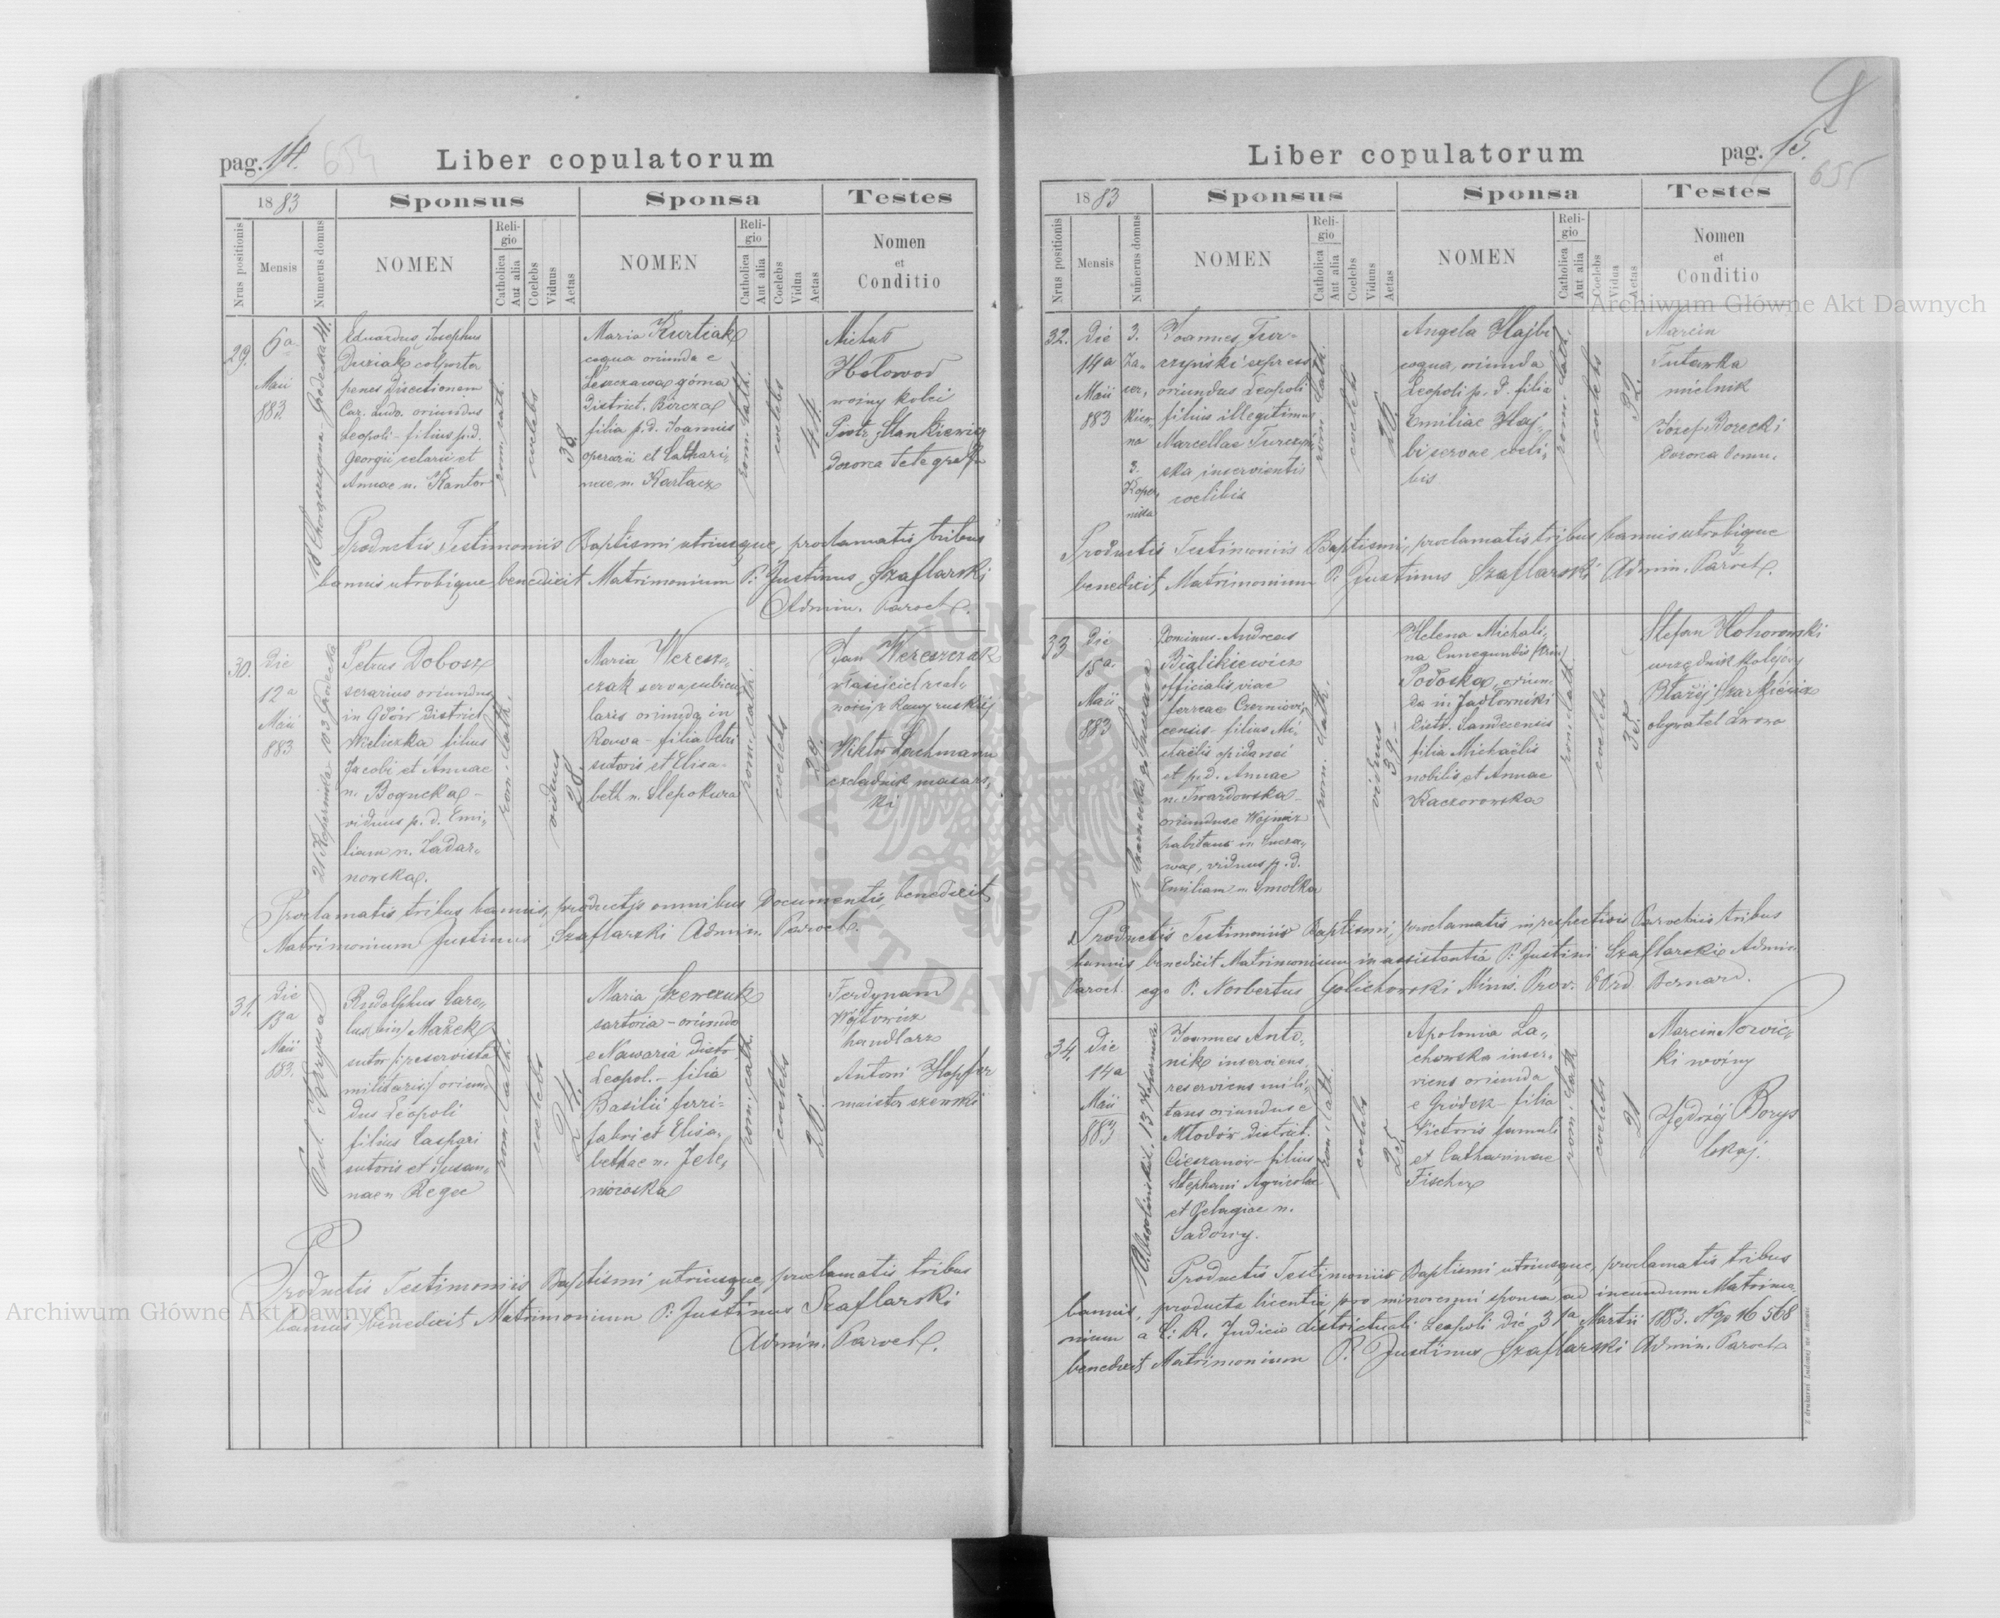 pag. 14. 654
Liber copulatorum
1883
Sponsus
Sponsa
Testes
Nrus positionis
Mensis
Numerus domus
NOMEN
Religio
Catholica
Aut alia
Coelebs
Viduus
Aetas
NOMEN
Religio
Catholica
Aut alia
Coelebs
Vidua
Aetas
Nomen
et
Conditio
29.
6a
Maii
883
Eduardus, Josephus
Duziak colporter
penes Directionem
Car. Ludo. oriundus
Leopoli - filius p.d.
Georgii celarii et
Annae n. Kantor
rom. cath.
coelebs
38.
Maria Kurtiak
coqua oriunda e
Leszczawa górna
district. Bircza
filia p.d. Joannis
operarii et Cathari-
nae n. Kartacz
rom. cath.
coelebs
44.
Michał
Hołowod
woźny kolei
Piotr Stankiewicz
dozorca telegrafu
Productis Testimoniis Baptismi utriusque, proclamatis tribus
bannis utrobique benedixit Matrimonium P. Justinus Szaflarski
Admin. Paroch.
30.
Die
12a
Maii
883
21 Kopernika 103 Gródecka
Petrus Dobosz
serarius oriundus
in Gdów district.
Wieliczka filius
Jacobi et Annae
n. Bogucka -
viduus p. d. Emi-
liam n. Zadar-
nowska.
rom. cath.
viduus
28.
Maria Weresz-
czak serva, cubicu-
laris oriunda in
Rawa - filia Petri
sutoris et Elisa-
beth n. Slepokura
rom. cath.
coelebs
28.
Jan Wereszczak
właściciel real-
ności z Rawy ruskiej
Wiktor Lachmann
czeladnik masars-
ki
Proclamatis tribus bannis, productis omnibus Documentis, benedixit
Matrimonium Justinus Szaflarski Admin. Paroch.
31.
Die
13a
Maii
883.
Rudolphus Caro-
lus (bin) Mażek
sutor (:reservista
militaris:) oriun-
dus Leopoli
filius Caspari
sutoris et Susan-
nae n Regec
rom. cath.
coelebs
24.
Maria Szewczuk
sartoria - oriunda
e Nawaria distr.
Leopol. - filia
Basilii ferri-
fabri et Elisa-
bethae n. Jele-
niowska
rom. cath.
coelebs
26.
Ferdynand
Wójtowicz
handlarz
Antoni Hopfer
majster szewski
Productis Testimoniis Baptismi utriusque, proclamatis tribus
bannis benedixit Matrimonium P. Justinus Szaflarski
Admin. Paroch.
Liber copulatorum
pag. 15.
655
1883
Sponsus
Sponsa
Testes
Nrus positionis
Mensis
Numerus domus
NOMEN
Religio
Catholica
Aut alia
Coelebs
Viduus
Aetas
NOMEN
Religio
Catholica
Aut alia
Coelebs
Vidua
Aetas
Nomen
et
Conditio
32.
Die
14a
Maii
883
3.
3.
Koper-
nika
Joannes Tur-
czyński express
oriundus Leopoli
filius illegitimus
Marcellae Turczyń-
ska inservientis
coelibis
rom. cath.
coelebs
26.
Angela Hajbi
coqua, oriunda
Leopoli p. d. filia
Emiliae Haj-
bi servae coeli-
bis
rom. cath.
coelebs
32.
Marcin
Tutawka
mielnik
Józef Borecki
dozorca domu.
Productis Testimoniis Baptismi, proclamatis tribus bannis utrobique
benedixit Matrimonium P. Justinus Szaflarski Admin. Paroch.
33
Die
15a
Maii
883
Dominus Andreas
Biglikiewicz
officialis viae
ferreae Czerniovi-
censis filius Mi-
chaelis opidanei
et p.d. Annae
n. Twardowska -
oriundus e Wojnicz
habitans in Sucza-
wa, viduus p. d.
Emiliam n. Smolka
rom. cath.
viduus
39.
Helena Michali-
na Cunegundis
Podoska, oriun-
da in Jadłowniki
distr. Sandecensis
filia Michaelis
nobilis et Annae
Kaczorowska
rom. cath.
coelebs
Stefan Hohorowski
urzędnik kolejowy
Błażej Szarkiewicz
obywatel Lwowa
Productis Testimoniis Baptismi, proclamatis in respectivis Parochiis tribus
bannis benedixit Matrimonium in assistentia P. Justini Szaflarski Admin.
Paroch. ego P. Norbertus Golichowski Minis. Prov. Ord. Bernard.
34.
Die
14a
Maii
883
Joannes Anto-
nik inserviens,
reserviens mili-
tans oriundus e
Młodów district.
Cieszanów - filius
Stephani Agricolae
et Pelagiae n.
Sadowy.
rom. cath.
coelebs
25.
Apolonia La-
chowska inser-
viens oriunda
e Gródek - filia
Victoris famuli
et Catharinae
Fischer
rom. cath.
coelebs
21
Marcin Nowic-
ki woźny
Jędrzej Borys
lokaj.
Productis Testimoniis Baptismi utriusque, proclamatis tribus
bannis, producta licentia pro minorenni sponsa, ad ineundum Matrimo-
nium a C. R. Judicio districtuali Leopoli die 31a Martii 1883. Nro 16568
benedixit Matrimonium P. Justinus Szaflarski Admin. Paroch.
Archiwum Główne Akt Dawnych
Archiwum Główne Akt Dawnych